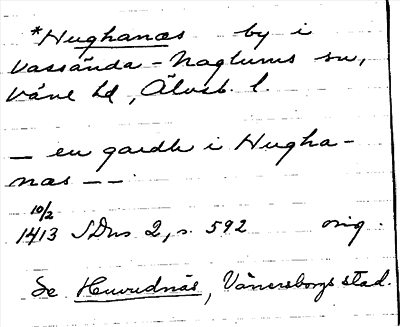 *Hughanæs by i
Vassända-Naglums sn,
Väne hd, Älvsb. l.
— en gardh i Hugha-
næs — —
10/2
1413 SDns 2, s. 592 orig.
Se Huvudnäs, Vänersborgs stad.